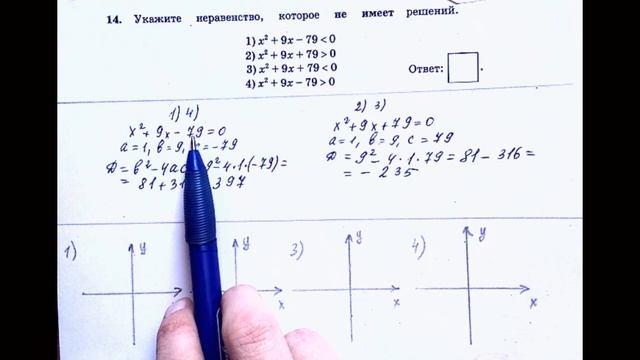 14. Укажите неравенство, которое не имеет решений.
1) x² + 9x − 79 < 0
2) x² + 9x + 79 > 0
3) x² + 9x + 79 < 0
4) x² + 9x − 79 > 0
Ответ: .
1) 4)
x² + 9x − 79 = 0
a = 1, b = 9, c = −79
D = b² − 4ac 9² − 4·1·(−79) =
= 81 + 31 397
2) 3)
x² + 9x + 79 = 0
a = 1, b = 9, c = 79
D = 9² − 4·1·79 = 81 − 316 =
= − 235
1) y
y x
3) y x
4) y x